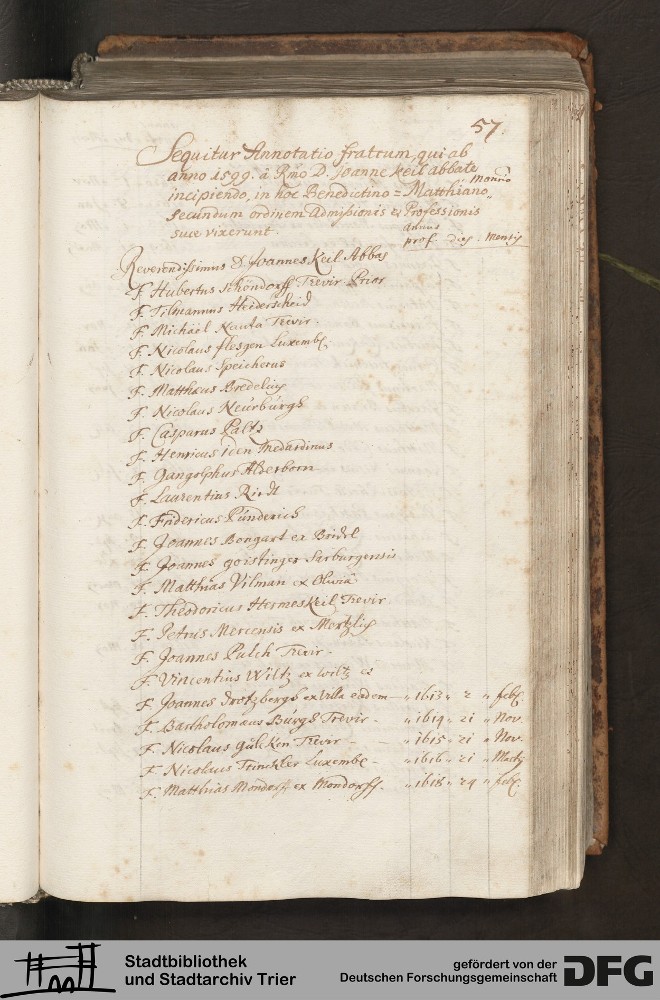 57.
Sequitur Annotatio fratrum, qui ab
anno 1599. à Rmo D. Joanne Keil abbate
incipiendo, in hoc Benedictino = Matthiano
secundum ordinem Admissionis et Professionis
suæ vixerunt.
annus
prof. dies. Mensis
Reverendissimus D. Joannes Keil Abbas
F. Hubertus Schöndorff Trevir Prior
F. Tilmannus Heiderscheid
F. Michaël Nauta Trevir.
F. Nicolaus flesgen Luxemb.
F. Nicolaus Speicherus
F. Matthæus Bredelius
F. Nicolaus Neürbürgh
F. Casparus Paltz
F. Henricus iden Medardinus
F. Gangolphus Alderborn
F. Laurentius Riedt
F. Fridericus Pünderich
F. Joannes Bongart ex Bridel
F. Joannes goistinger Sarburgensis
F. Matthias Vilman ex Oliviâ
F. Theodoricus HermesKeil Trevir
F. Petrus Mercensis ex Mertzlig
F. Joannes Pulch Trevir.
F. Vincentius Wiltz ex wiltz
F. Joannes Drotzbergh ex villa eadem — " 1613 " 2 " feb.
F. Bartholomæus Bürgh Trevir - " 1614 " 21 " Nov.
F. Nicolaus gülcken Trevir - " 1615 " 21 " Nov.
F. Nicolaus Trinckler Luxembe - " 1616 " 21 " Marty
F. Matthias Mondorff ex Mondorff. " 1618 " 24 " feb.
Stadtbibliothek
und Stadtarchiv Trier
gefördert von der
Deutschen Forschungsgemeinschaft
DFG